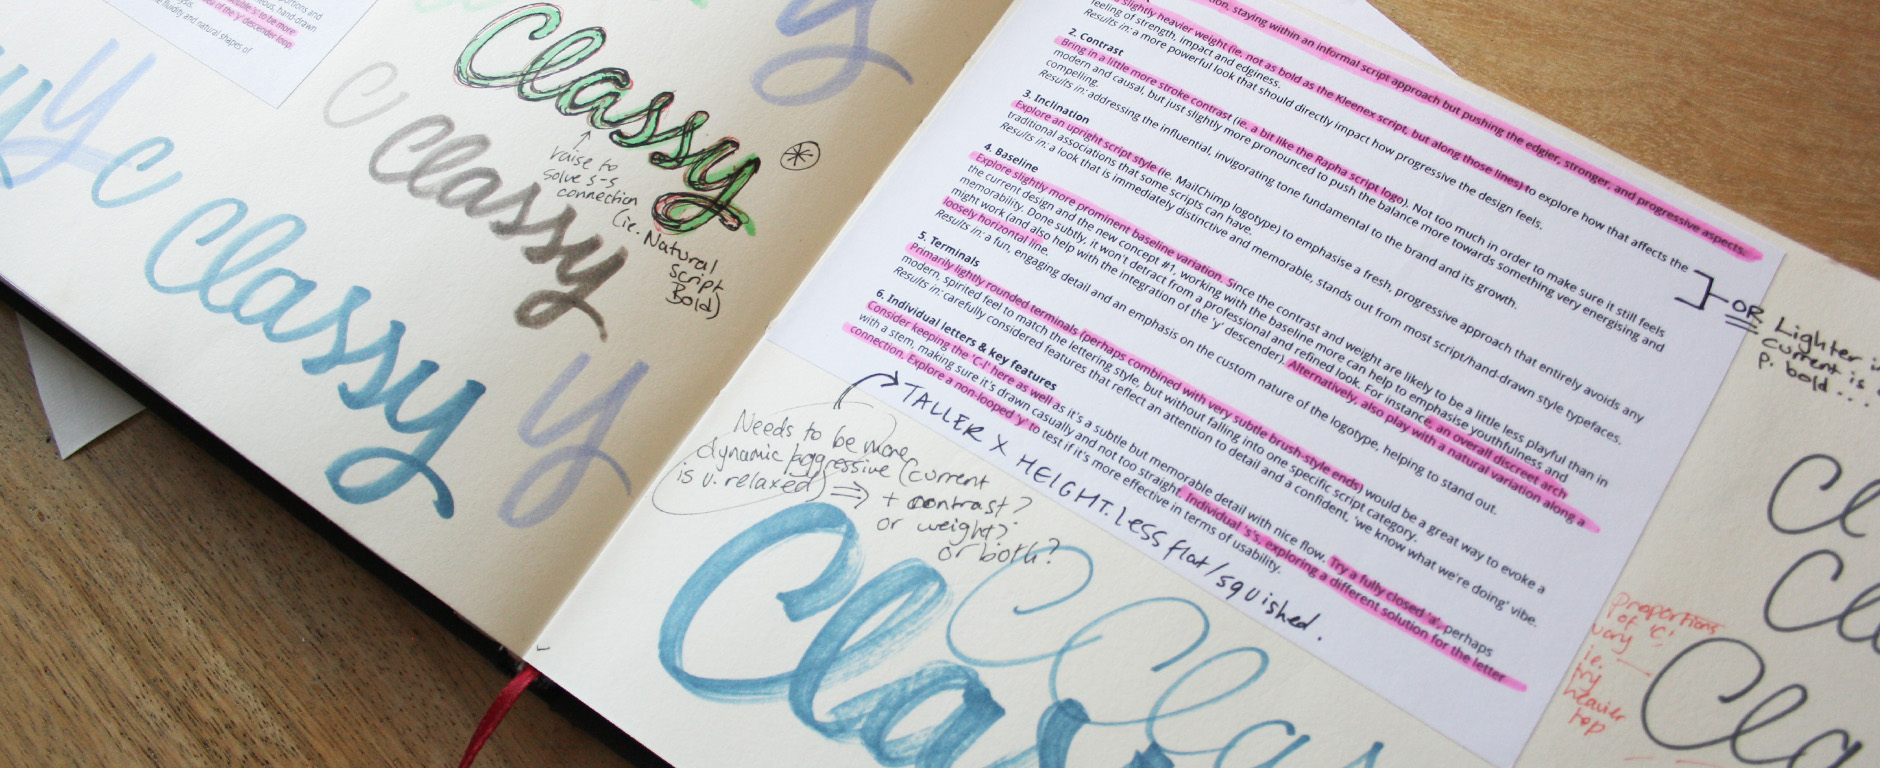 portions and
hand-drawn
to be more
of the 'y' descender loop.
fluidity and natural shapes of
y
y
y
C
Classy
C Classy
Classy
y
raise to
solve s-s
connection
(ie. Natural
Script
Bold)
staying within an informal script approach but pushing the edgier, stronger, and progressive aspects.
slightly heavier weight (ie. not as bold as the Kleenex script, but along those lines) to explore how that affects the
feeling of strength, impact and edginess.
Results in: a more powerful look that should directly impact how progressive the design feels.
2. Contrast
Bring in a little more stroke contrast (ie. a bit like the Rapha script logo). Not too much in order to make sure it still feels
modern and causal, but just slightly more pronounced to push the balance more towards something very energising and
compelling.
Results in: addressing the influential, invigorating tone fundamental to the brand and its growth.
3. Inclination
Explore an upright script style (ie. MailChimp logotype) to emphasise a fresh, progressive approach that entirely avoids any
traditional associations that some scripts can have.
Results in: a look that is immediately distinctive and memorable, stands out from most script/hand-drawn style typefaces.
4. Baseline
Explore slightly more prominent baseline variation. Since the contrast and weight are likely to be a little less playful than in
the current design and the new concept #1, working with the baseline more can help to emphasise youthfulness and
memorability. Done subtly, it won't detract from a professional and refined look. For instance, an overall discreet arch
might work (and also help with the integration of the 'y' descender). Alternatively, also play with a natural variation along a
loosely horizontal line.
Results in: a fun, engaging detail and an emphasis on the custom nature of the logotype, helping to stand out.
5. Terminals
Primarily lightly rounded terminals (perhaps combined with very subtle brush-style ends) would be a great way to evoke a
modern, spirited feel to match the lettering style, but without falling into one specific script category.
Results in: carefully considered features that reflect an attention to detail and a confident, 'we know what we're doing' vibe.
6. Individual letters & key features
Consider keeping the 'C-l' here as well as it's a subtle but memorable detail with nice flow. Try a fully closed 'a', perhaps
with a stem, making sure it's drawn casually and not too straight. Individual 's's, exploring a different solution for the letter
connection. Explore a non-looped 'y' to test if it's more effective in terms of usability.
OR Lighter
current is
p. bold ....
TALLER X HEIGHT. Less flat/squished.
Needs to be more
dynamic/aggressive (current
is v. relaxed) ⇒ + contrast?
or weight?
or both?
Cla
Clas
Cl
Cl
Cla
proportions
of 'C'
vary
ie.
try
heavier
top